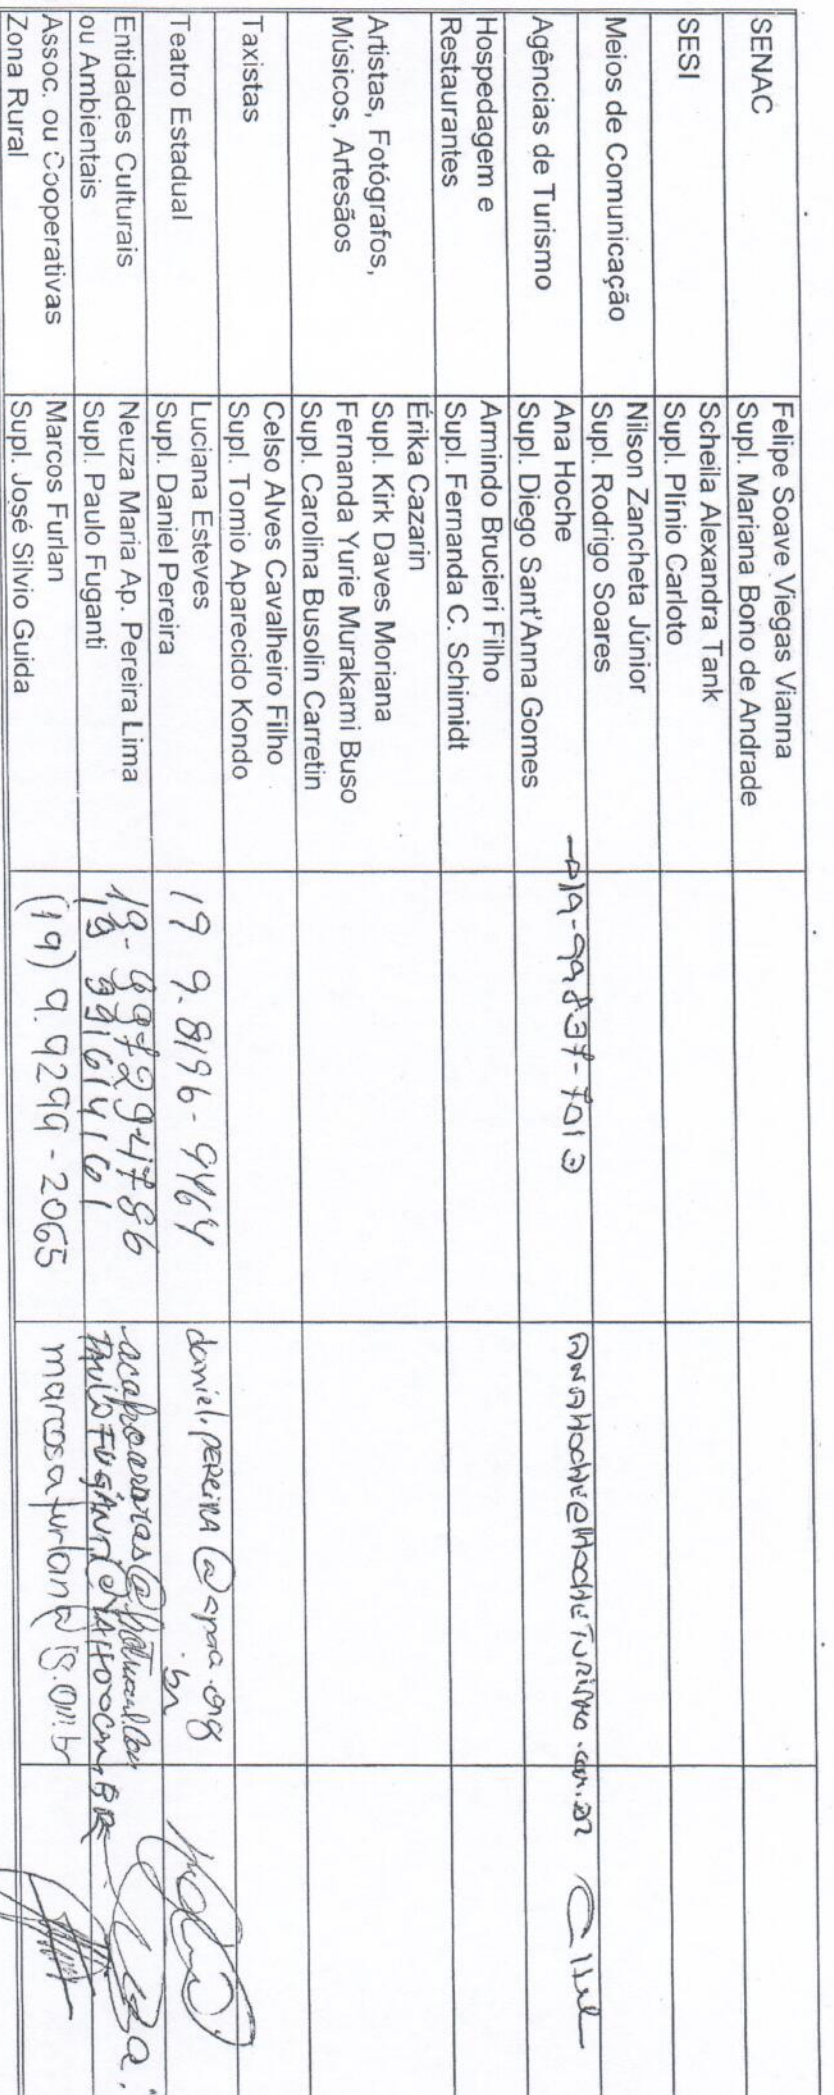 SENAC
Felipe Soave Viegas Vianna
Supl. Mariana Bono de Andrade
SESI
Scheila Alexandra Tank
Supl. Plínio Carloto
Meios de Comunicação
Nilson Zancheta Júnior
Supl. Rodrigo Soares
Agências de Turismo
Ana Hoche
Supl. Diego Sant'Anna Gomes
19-99837-7013
anahoche@hocheturismo.com.br
Hospedagem e
Restaurantes
Armindo Brucieri Filho
Supl. Fernanda C. Schimidt
Artistas, Fotógrafos,
Músicos, Artesãos
Érika Cazarin
Supl. Kirk Daves Moriana
Fernanda Yurie Murakami Buso
Supl. Carolina Busolin Carretin
Taxistas
Celso Alves Cavalheiro Filho
Supl. Tomio Aparecido Kondo
Teatro Estadual
Luciana Esteves
Supl. Daniel Pereira
19 9.8196-9464
daniel.pereira@apaa.org
.br
Entidades Culturais
ou Ambientais
Neuza Maria Ap. Pereira Lima
Supl. Paulo Fuganti
19-997294786
19 991614161
Assoc. ou Cooperativas
Zona Rural
Marcos Furlan
Supl. José Silvio Guida
(19) 9.9299-2065